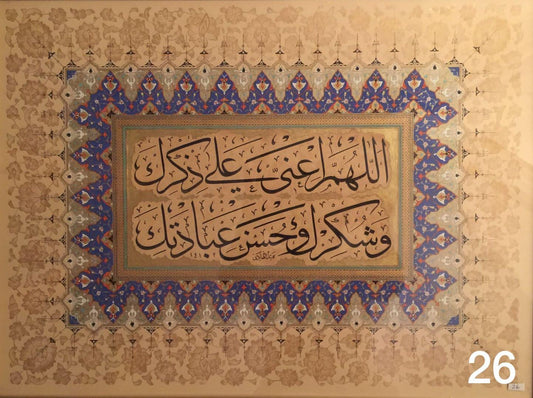 اللهم اعنى على ذكرك
وشكرك وحسن عبادتك
26